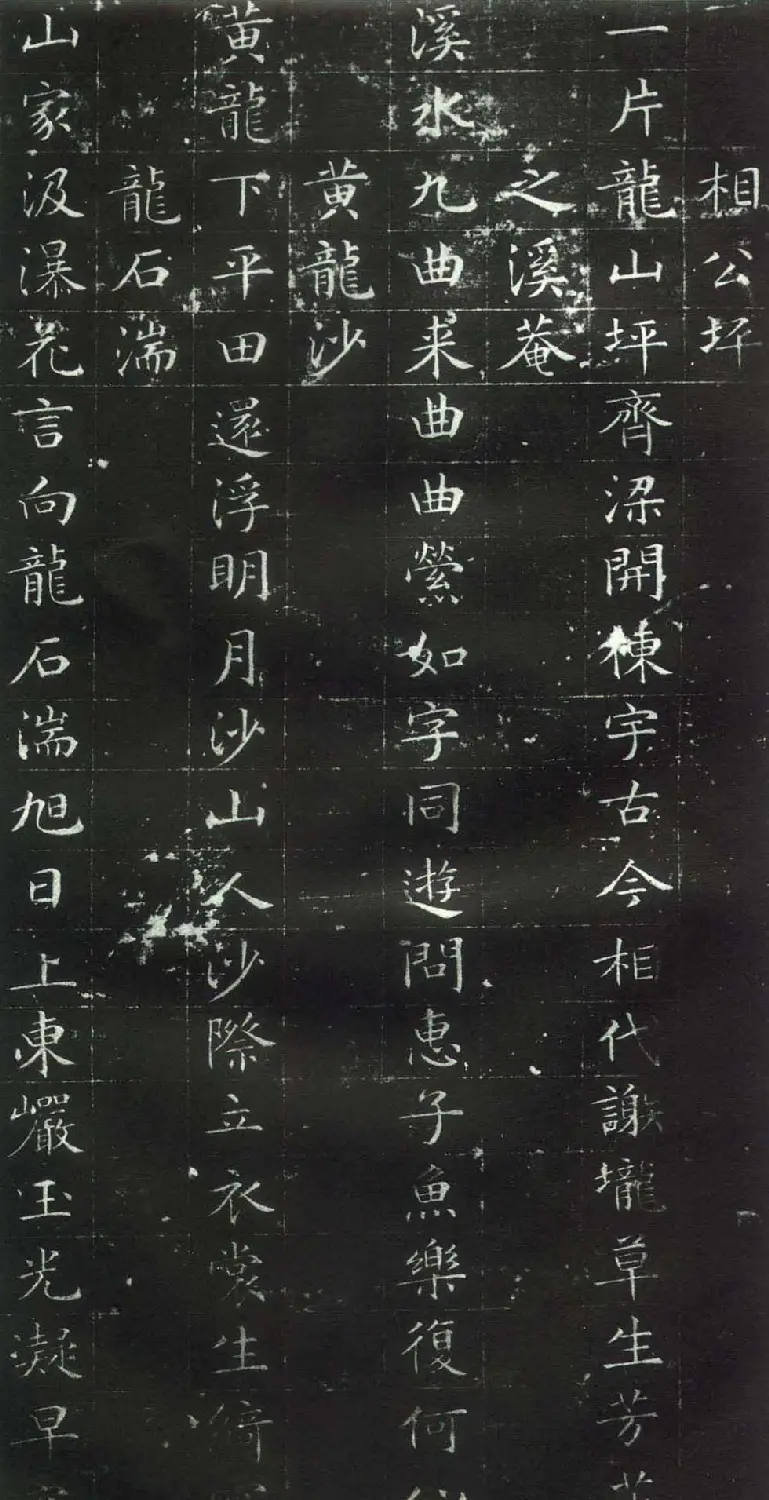 相公坪
一片龍山坪齊梁開棟宇古今相代謝壠草生芳
之溪菴
溪水九曲来曲曲縈如字同遊問惠子魚樂復何
黄龍沙
黄龍下平田還浮明月沙山人沙際立衣裳生綺
龍石湍
山家汲瀑花言向龍石湍旭日上東巖玉光凝早